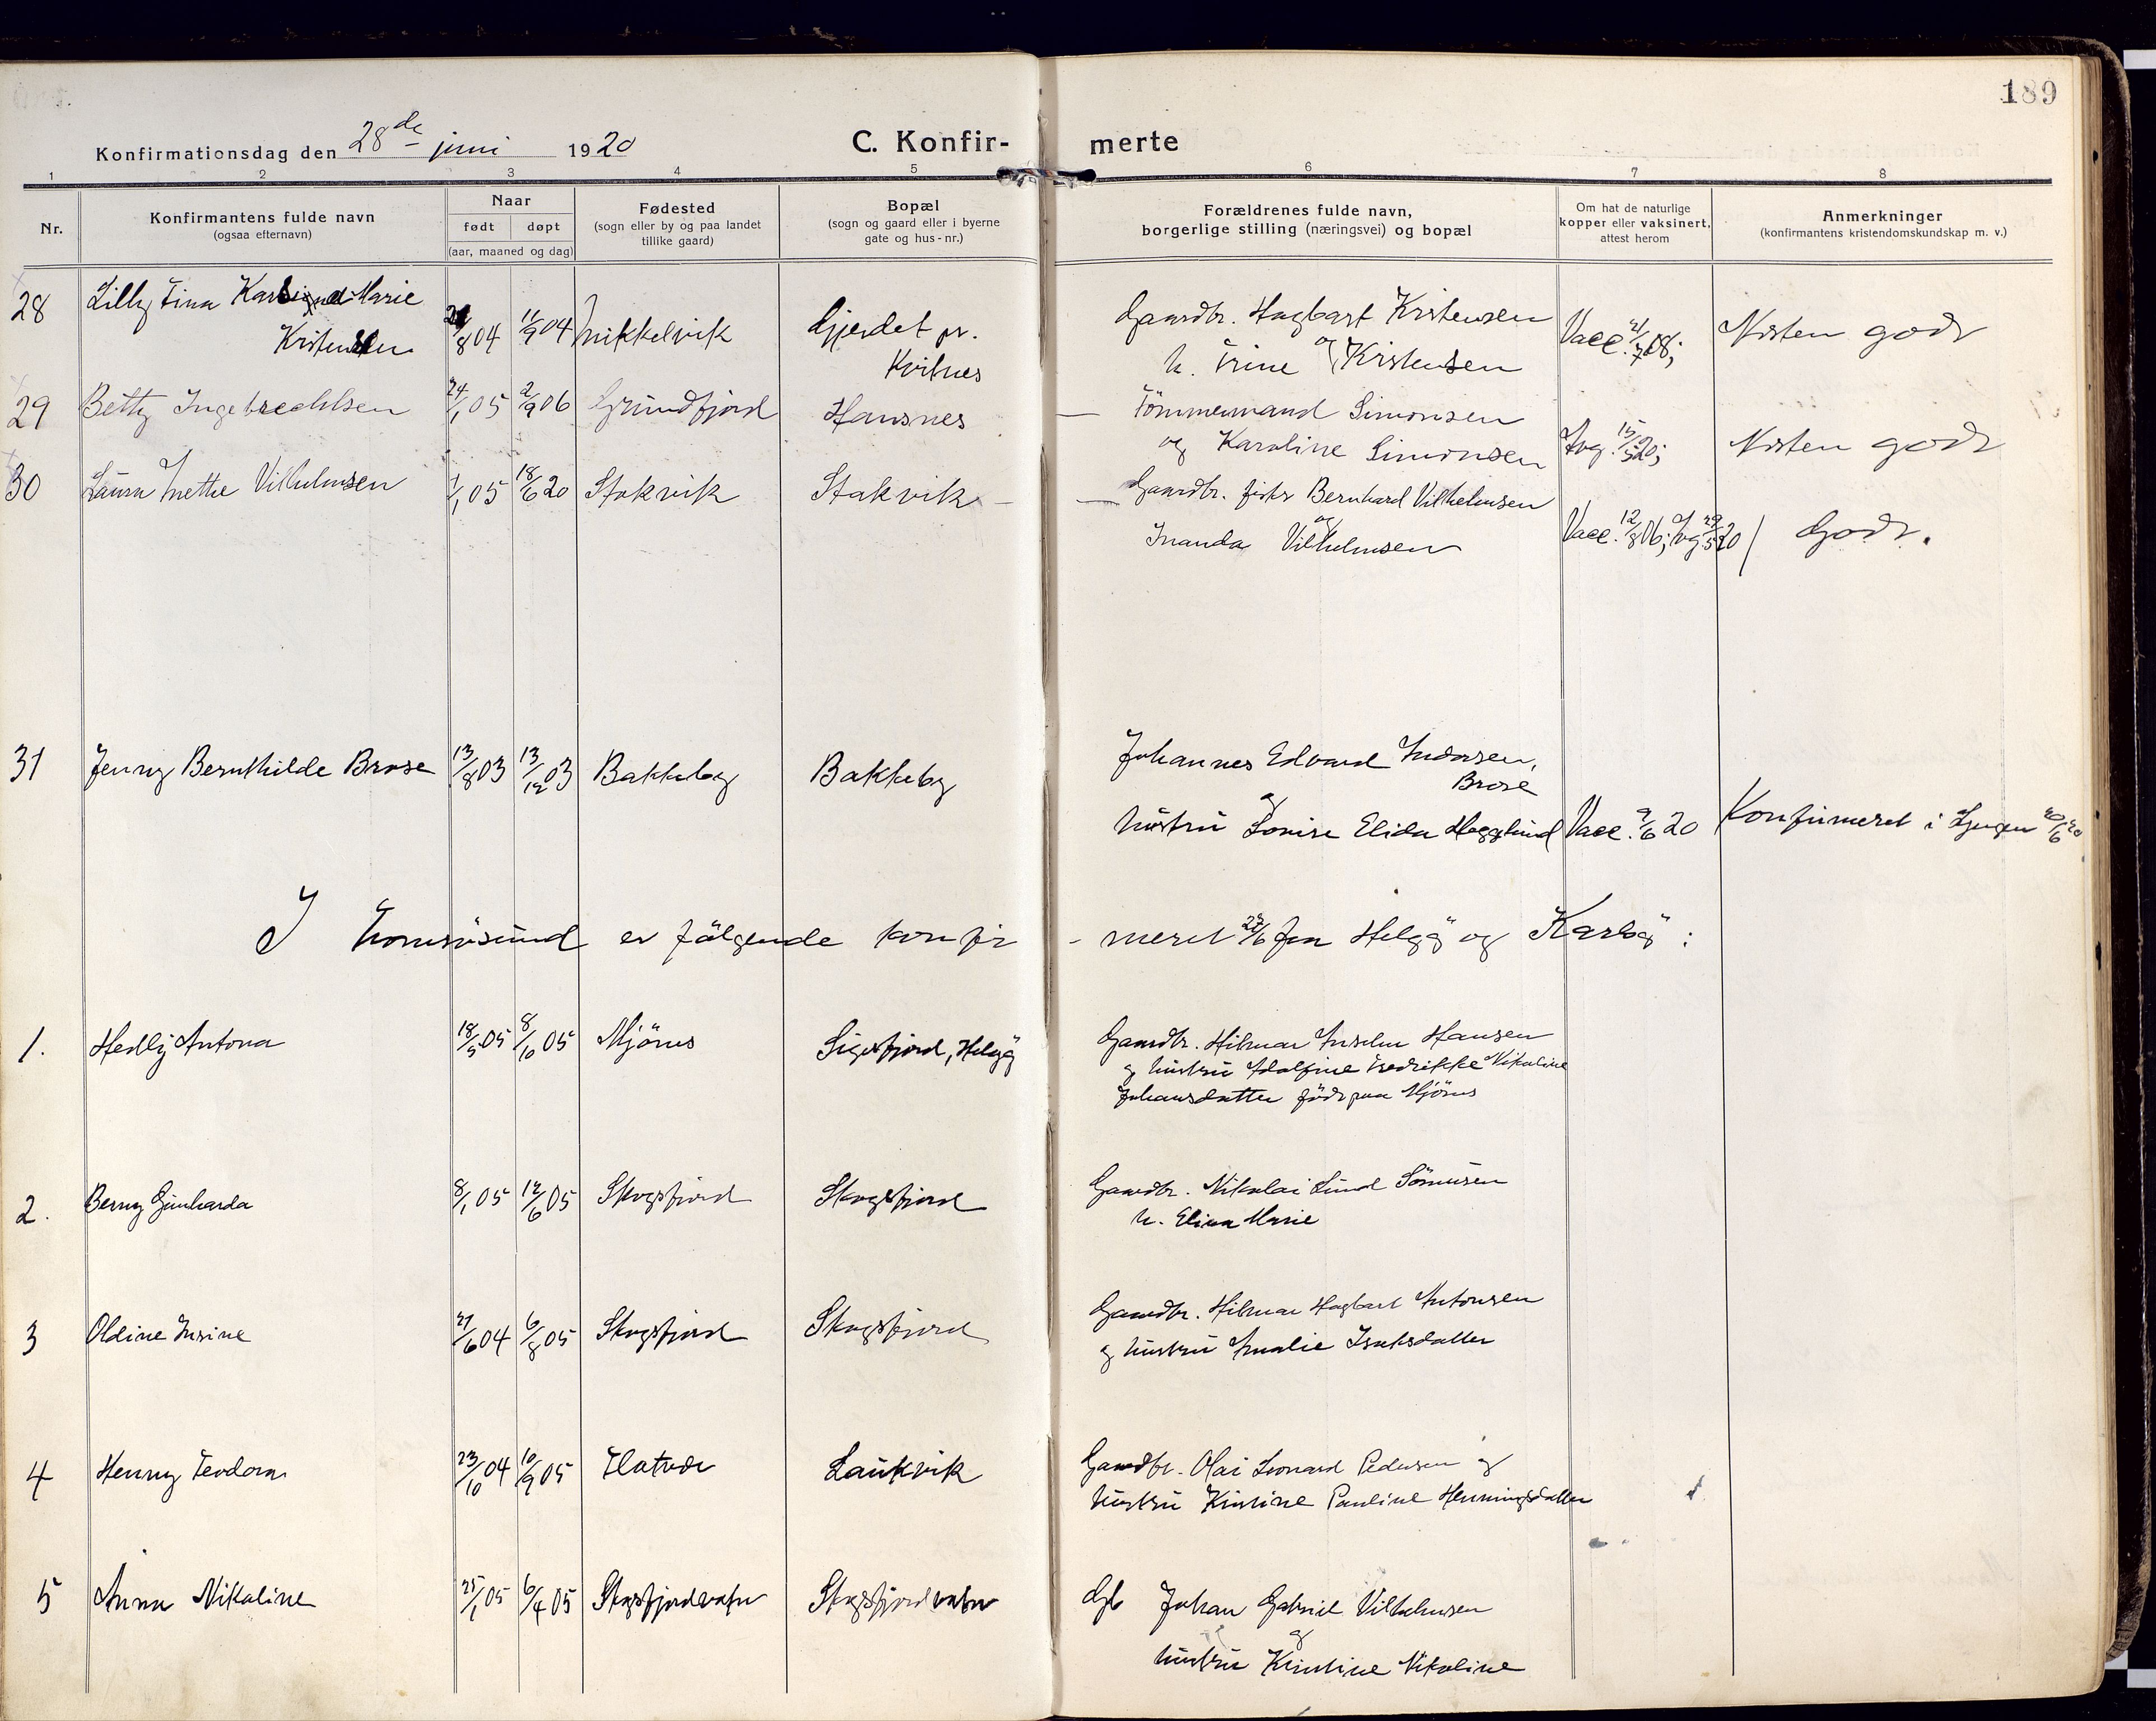 189
Konfirmationsdag den 28de juni 1920
C. Konfir- merte
1 2 3 4 5 6 7 8
Nr.
Konfirmantens fulde navn
(ogsaa efternavn)
Naar
født døpt
(aar, maaned og dag)
Fødested
(sogn eller by og paa landet
tillike gaard)
Bopæl
(sogn og gaard eller i byerne
gate og hus-nr.)
Forældrenes fulde navn,
borgerlige stilling (næringsvei) og bopæl
Om hat de naturlige
kopper eller vaksinert,
attest herom
Anmerkninger
(konfirmantens kristendomskundskap m. v.)
28 Lilly Tina Marie
Kristensen 8 04 11/9 04 Mikkelvik Gjerdet pr.
Kvitnes
Gaardbr. Hagbart Kristensen
og
h. Trine Kristensen Vacc. 08; Næsten godt
29 Betty Ingebrechtsen 24/1 05 2/9 06 Grundfjord Hansnes
— Tömmermand Simonsen
og Karoline Simonsen Avg. 15/5 20; Næsten godt
30 Laura Mettie Vilhelmsen 1/1 05 18/6 20 Stakvik Stakvik —
— Gaardbr. fisker Bernhard Vilhelmsen
og
Amanda Vilhelmsen Vacc. 12/8 06; Avg. 29/5 20 / Godt.
31 Jenny Bernthilde Brose 13/8 03 13/12 03 Bakkeby Bakkeby
Johannes Edvard Andersen,
Brose
og
hüstrü Lovise Elida Hegglund Vacc. 9/6 20 Konfirmeret i Lyngen 20/6 20
I Tromsösund er fölgende konfir - meret 27/6 fra Helgö og Karlsö :
1. Hedly Antona 18/5 05 8/10 05 Mjönes Sigerfjord, Helgö
Gaardbr. Hilmar Anselm Hansen
og hüstrü Adolfine Fredrikke Nikoline
Johansdatter född paa Mjönes
2. Berny Gunharda 8/1 05 12/6 05 Skogsfjord Skogsfjord
Gaardbr. Nikolai Lund Sörensen
h. Elina Marie
3 Oldine Ansine 27/6 04 6/8 05 Skogsfjord Skogsfjord
Gaardbr. Hilmar Hagbart Antonsen
og hüstrü Amalie Isaksdatter
4 Henny Teodora 23/10 04 10/9 05 Flatvær Laukvik
Gaardbr. Olai Leonard Pedersen og
hüstrü Kristine Pauline Henningsdatter
5 Anna Nikoline 25/1 05 6/4 05 Skogsfjordvatn Skogsfjordvatn
Gb Johan Gabriel Vilhelmsen
og
hüstrü Kristine Nikoline